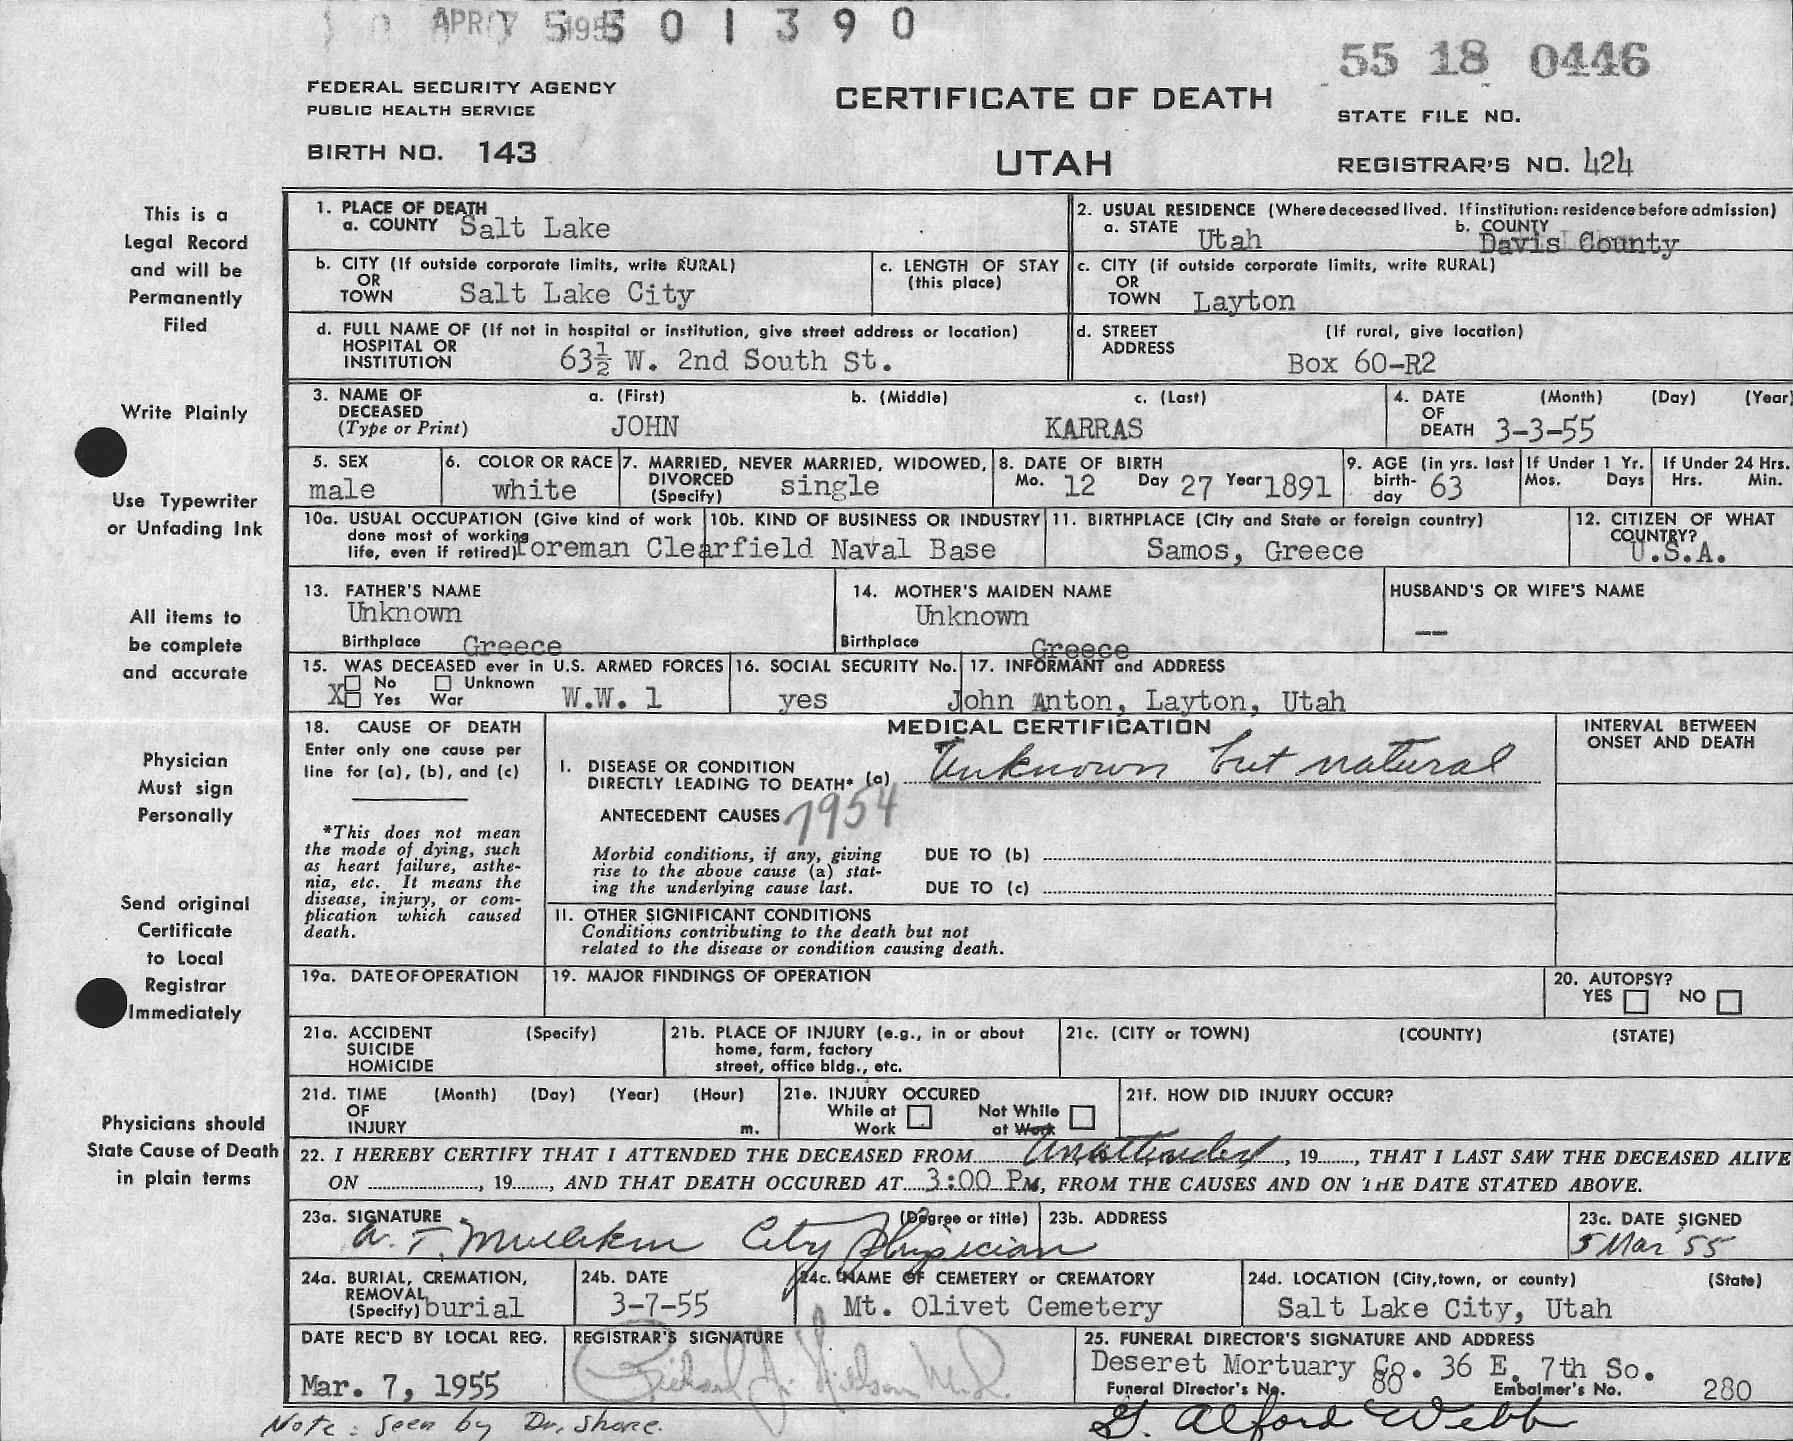 APR 7 1955
5 5 0 1 3 9 0
55 18 0446
FEDERAL SECURITY AGENCY
PUBLIC HEALTH SERVICE
CERTIFICATE OF DEATH
STATE FILE NO.
BIRTH NO. 143
UTAH
REGISTRAR'S NO. 424
This is a
Legal Record
and will be
Permanently
Filed
Write Plainly
Use Typewriter
or Unfading Ink
All items to
be complete
and accurate
Physician
Must sign
Personally
Send original
Certificate
to Local
Registrar
Immediately
Physicians should
State Cause of Death
in plain terms
1. PLACE OF DEATH
a. COUNTY Salt Lake
2. USUAL RESIDENCE (Where deceased lived. If institution: residence before admission)
a. STATE Utah b. COUNTY Davis County
b. CITY (If outside corporate limits, write RURAL)
OR
TOWN Salt Lake City
c. LENGTH OF STAY
(this place)
c. CITY (if outside corporate limits, write RURAL)
OR
TOWN Layton
d. FULL NAME OF (If not in hospital or institution, give street address or location)
HOSPITAL OR
INSTITUTION 63½ W. 2nd South St.
d. STREET (If rural, give location)
ADDRESS
Box 60-R2
3. NAME OF a. (First) b. (Middle) c. (Last)
DECEASED
(Type or Print) JOHN KARRAS
4. DATE (Month) (Day) (Year)
OF
DEATH 3-3-55
5. SEX
male
6. COLOR OR RACE
white
7. MARRIED, NEVER MARRIED, WIDOWED,
DIVORCED
(Specify) single
8. DATE OF BIRTH
Mo. 12 Day 27 Year 1891
9. AGE (in yrs. last
birth-
day 63
If Under 1 Yr.
Mos. Days
If Under 24 Hrs.
Hrs. Min.
10a. USUAL OCCUPATION (Give kind of work
done most of working
life, even if retired) foreman
10b. KIND OF BUSINESS OR INDUSTRY
Clearfield Naval Base
11. BIRTHPLACE (City and State or foreign country)
Samos, Greece
12. CITIZEN OF WHAT
COUNTRY?
U.S.A.
13. FATHER'S NAME
Unknown
Birthplace Greece
14. MOTHER'S MAIDEN NAME
Unknown
Birthplace Greece
HUSBAND'S OR WIFE'S NAME
--
15. WAS DECEASED ever in U.S. ARMED FORCES
No Unknown
X Yes War W.W. 1
16. SOCIAL SECURITY No.
yes
17. INFORMANT and ADDRESS
John Anton, Layton, Utah
18. CAUSE OF DEATH
Enter only one cause per
line for (a), (b), and (c)
*This does not mean
the mode of dying, such
as heart failure, asthe-
nia, etc. It means the
disease, injury, or com-
plication which caused
death.
MEDICAL CERTIFICATION
I. DISEASE OR CONDITION
DIRECTLY LEADING TO DEATH* (a) Unknown but natural
ANTECEDENT CAUSES 7954
Morbid conditions, if any, giving
rise to the above cause (a) stat-
ing the underlying cause last.
DUE TO (b)
DUE TO (c)
II. OTHER SIGNIFICANT CONDITIONS
Conditions contributing to the death but not
related to the disease or condition causing death.
INTERVAL BETWEEN
ONSET AND DEATH
19a. DATE OF OPERATION
19. MAJOR FINDINGS OF OPERATION
20. AUTOPSY?
YES NO
21a. ACCIDENT (Specify)
SUICIDE
HOMICIDE
21b. PLACE OF INJURY (e.g., in or about
home, farm, factory
street, office bldg., etc.
21c. (CITY or TOWN) (COUNTY) (STATE)
21d. TIME (Month) (Day) (Year) (Hour)
OF
INJURY m.
21e. INJURY OCCURED
While at Not While
Work at Work
21f. HOW DID INJURY OCCUR?
22. I HEREBY CERTIFY THAT I ATTENDED THE DECEASED FROM Unattended, 19, THAT I LAST SAW THE DECEASED ALIVE
ON, 19, AND THAT DEATH OCCURED AT 3:00 PM, FROM THE CAUSES AND ON THE DATE STATED ABOVE.
23a. SIGNATURE (Degree or title)
City Physician
23b. ADDRESS
23c. DATE SIGNED
5 Mar 55
24a. BURIAL, CREMATION,
REMOVAL
(Specify) burial
24b. DATE
3-7-55
24c. NAME OF CEMETERY or CREMATORY
Mt. Olivet Cemetery
24d. LOCATION (City, town, or county) (State)
Salt Lake City, Utah
DATE REC'D BY LOCAL REG.
Mar. 7, 1955
REGISTRAR'S SIGNATURE
25. FUNERAL DIRECTOR'S SIGNATURE AND ADDRESS
Deseret Mortuary Co. 36 E. 7th So.
Funeral Director's No. 80 Embalmer's No. 280
G. Alford Webb
Note: Seen by Dr. Shore.